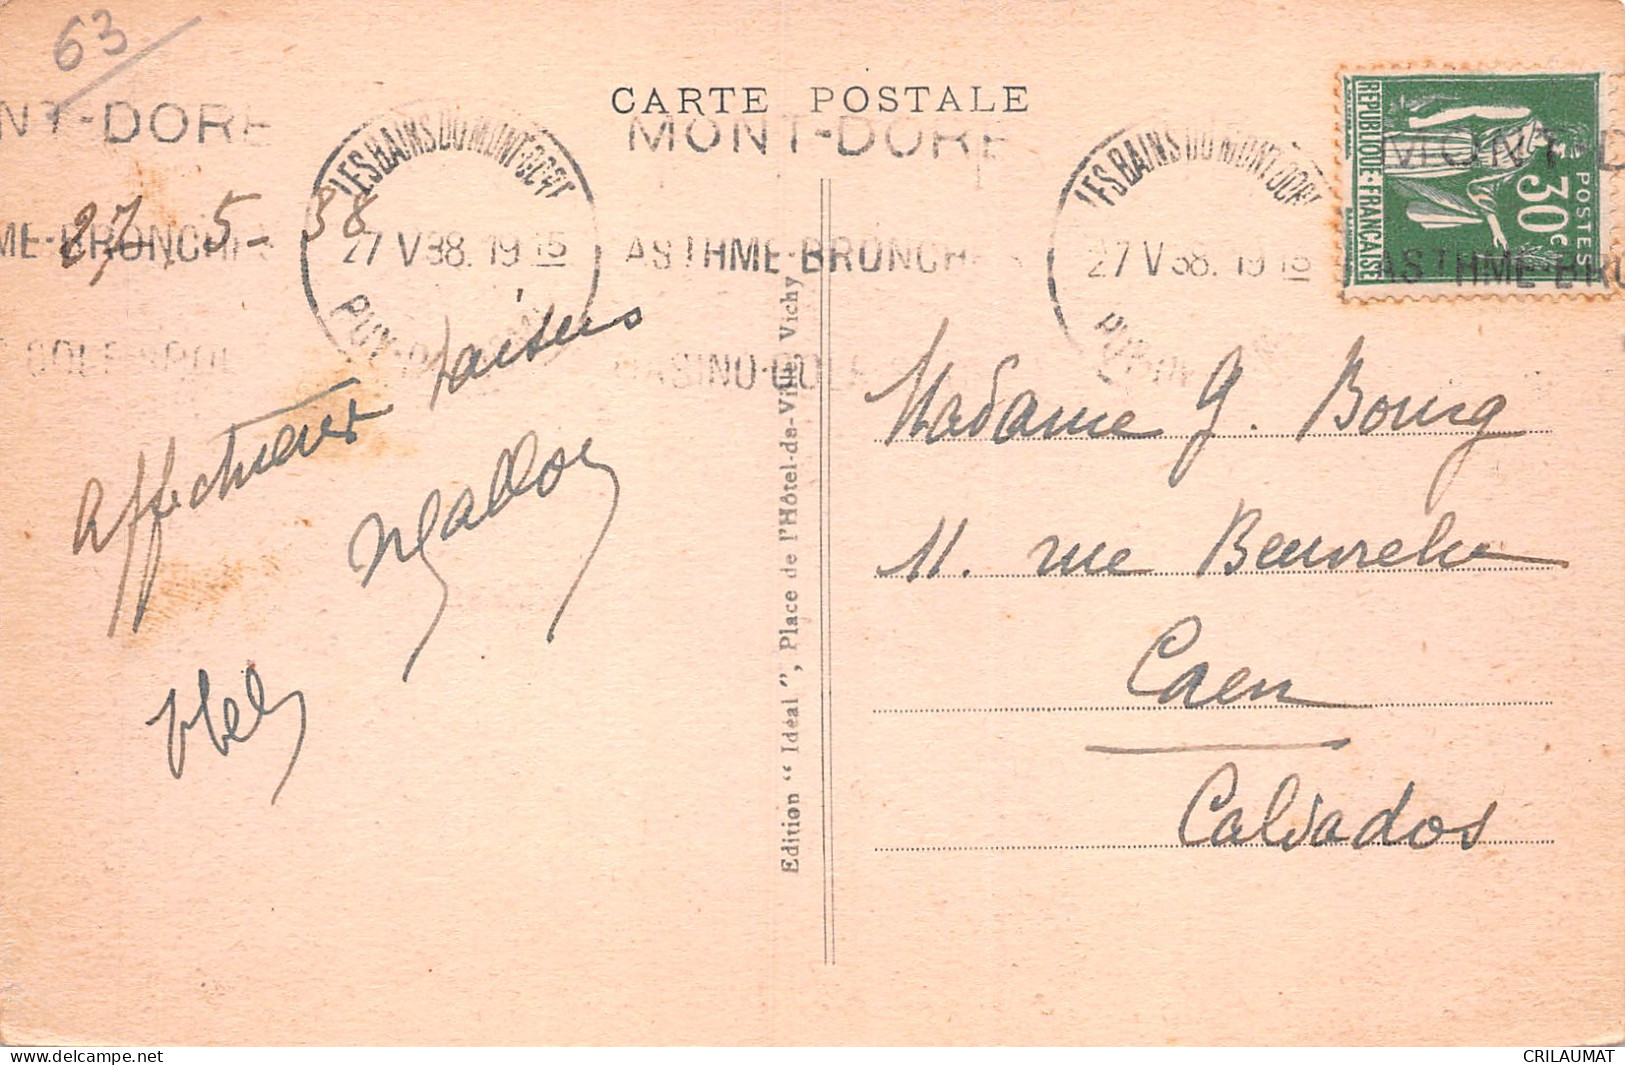 63
CARTE POSTALE
NT-DORE
MONT-DORE
MONT-D
LES BAINS DU MONT DORE
LES BAINS DU MONT DORE
REPUBLIQUE·FRANÇAISE
POSTES
30c
27-5-38
ME-BRONCHES
27 V 38. 19 15
ASTHME-BRONCH
27 V 38. 19 15
ASTHME-BRO
PUY-DE
CASINO-GOLF
PUY-DE
Affectueux baisers
Madame G. Bourg
11. rue
Caen
Calvados
Edition "Idéal", Place de l'Hôtel-de-Ville, Vichy
CRILAUMAT
www.delcampe.net